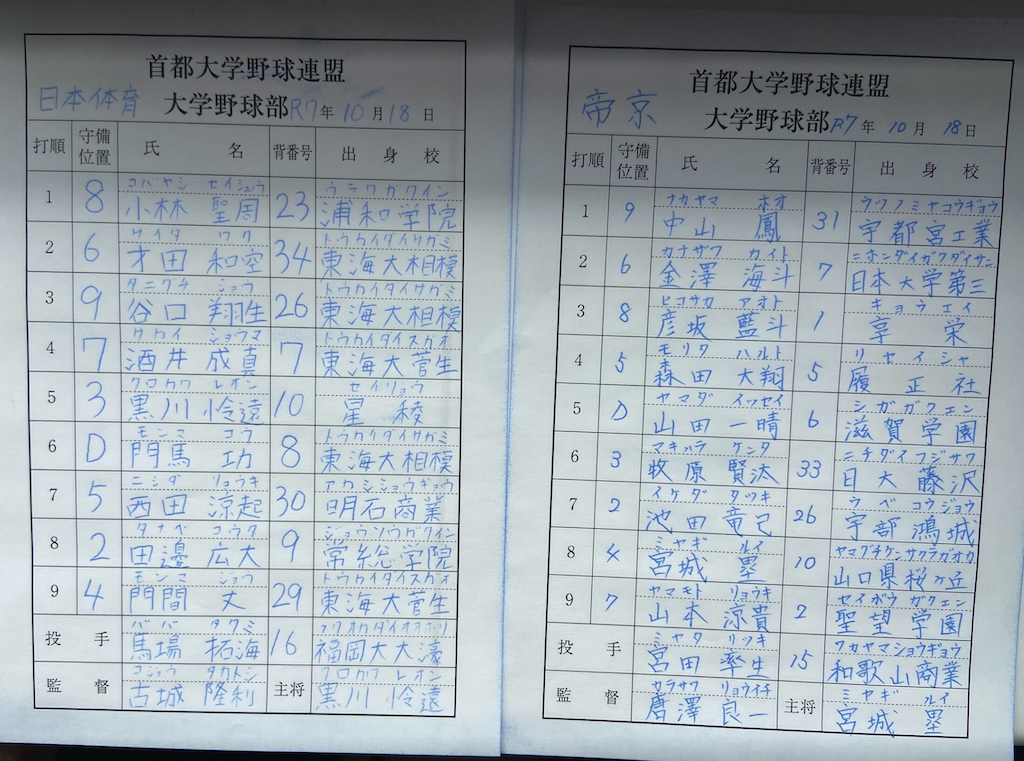 首都大学野球連盟
日本体育 大学野球部 R7年 10月 18日
打順 守備位置 氏名 背番号 出身校
コバヤシ セイシュウ ウラワガクイン
1 8 小林 聖周 23 浦和学院
サイタ ワク トウカイダイサガミ
2 6 才田 和空 34 東海大相模
タニグチ ショウ トウカイダイサガミ
3 9 谷口 翔生 26 東海大相模
サカイ ショウマ トウカイダイスガオ
4 7 酒井 成真 7 東海大菅生
クロカワ レイン セイリョウ
5 3 黒川 怜遠 10 星稜
モンマ コウ トウカイダイサガミ
6 D 門馬 功 8 東海大相模
ニシダ リョウキ アカシショウギョウ
7 5 西田 涼起 30 明石商業
タナベ コウタ ジョウソウガクイン
8 2 田邊 広大 9 常総学院
モンマ ジョウ トウカイダイスガオ
9 4 門間 丈 29 東海大菅生
ババ タクミ フクオカダイオオホリ
投手 馬場 拓海 16 福岡大大濠
コジョウ タカトシ クロカワ レイン
監督 古城 隆利 主将 黒川 怜遠
首都大学野球連盟
帝京 大学野球部 R7年 10月 18日
打順 守備位置 氏名 背番号 出身校
ナカヤマ ホオ ウツノミヤコウギョウ
1 9 中山 鳳 31 宇都宮工業
カナザワ カイト ニホンダイガクダイサン
2 6 金澤 海斗 7 日本大学第三
ヒコサカ アオト キョウエイ
3 8 彦坂 藍斗 1 享栄
モリタ ハルト リセイシャ
4 5 森田 大翔 5 履正社
ヤマダ イッセイ シガガクエン
5 D 山田 一晴 6 滋賀学園
マキハラ ケンタ ニチダイフジサワ
6 3 牧原 賢汰 33 日大藤沢
イケダ タツキ ウベ コウジョウ
7 2 池田 竜己 26 宇部鴻城
ミヤギ ルイ ヤマグチケンサクラガオカ
8 4 宮城 塁 10 山口県桜ヶ丘
ヤマモト リョウキ セイボウ ガクエン
9 7 山本 涼貴 2 聖望学園
ミヤタ リツキ ワカヤマショウギョウ
投手 宮田 率生 15 和歌山商業
カラサワ リョウイチ ミヤギ ルイ
監督 唐澤 良一 主将 宮城 塁